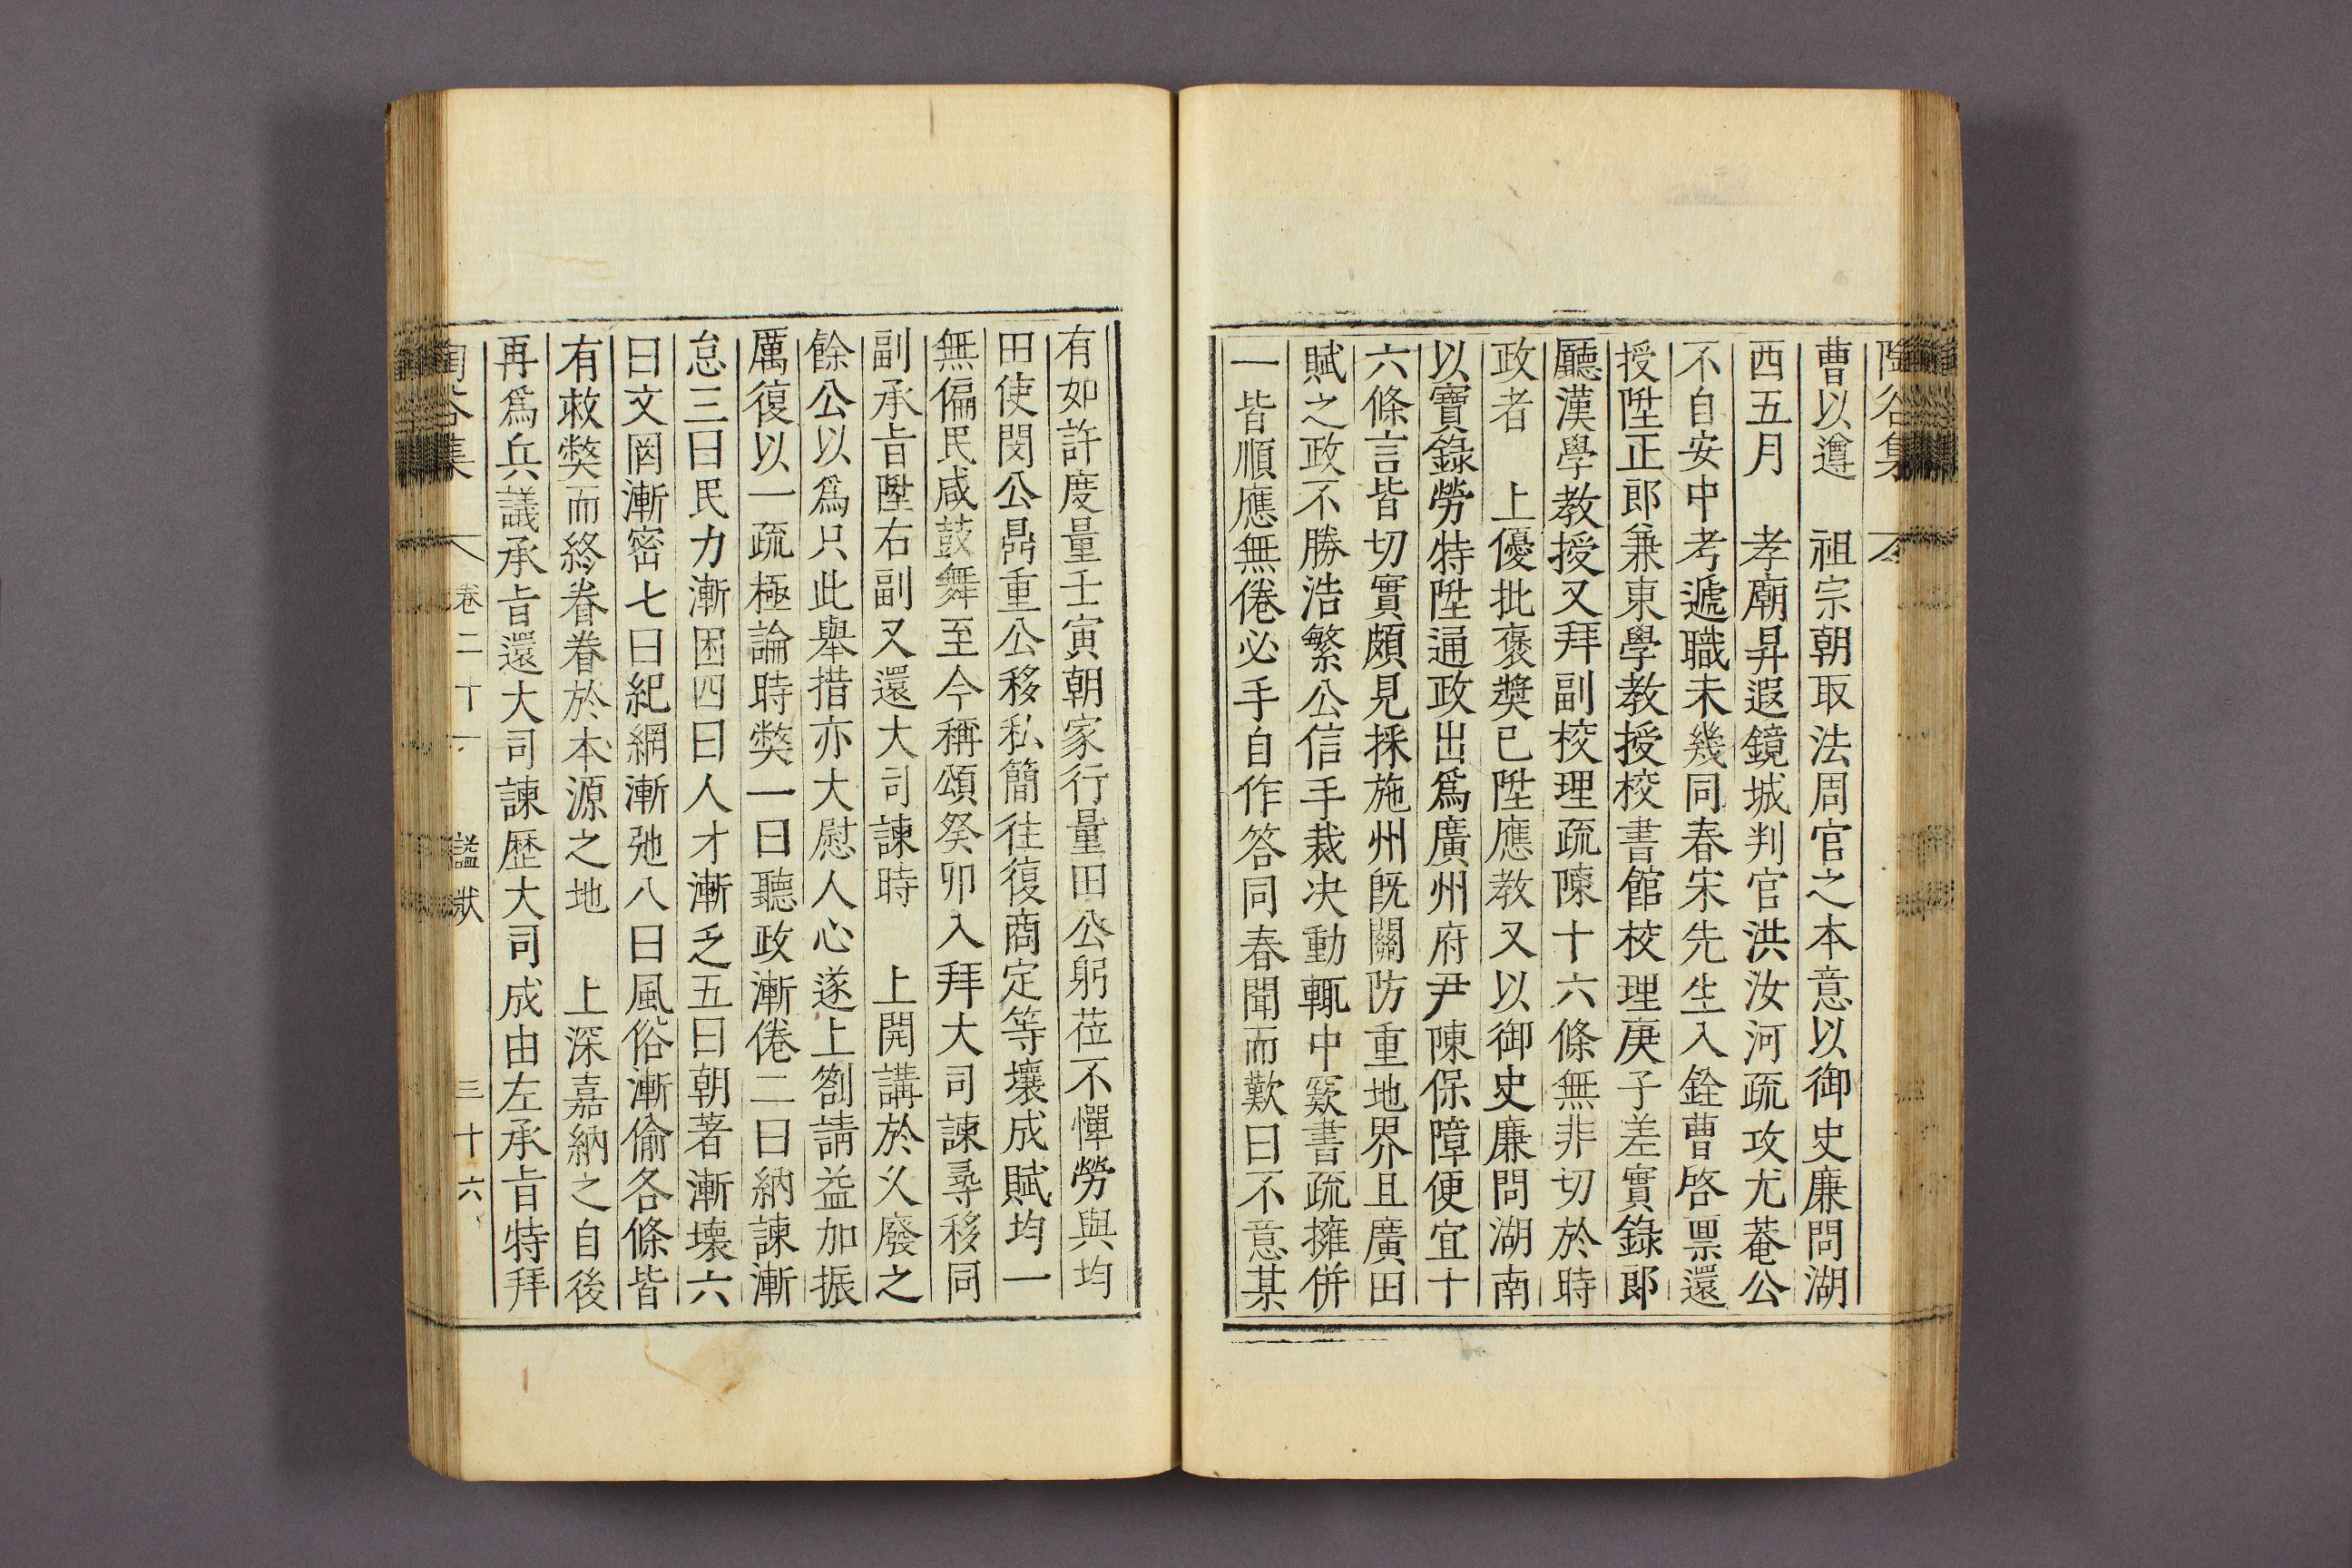 陶谷集
曹以遵　祖宗朝取法周官之本意以御史廉問湖
西五月　孝廟昇遐鏡城判官洪汝河疏攻尤菴公
不自安中考遞職未幾同春宋先生入銓曹啓禀還
授陞正郎兼東學教授校書館校理庚子差實錄郎
廳漢學教授又拜副校理疏陳十六條無非切於時
政者　上優批褒奬已陞應教又以御史廉問湖南
以寶錄勞特陞通政出爲廣州府尹陳保障便宜十
六條言皆切實頗見採施州旣關防重地界且廣田
賦之政不勝浩繁公信手裁决動輒中窾書疏擁併
一皆順應無倦必手自作答同春聞而歎曰不意某
有如許度量壬寅朝家行量田公躬莅不憚勞與均
田使閔公鼎重公移私簡往復商定等壤成賦均一
無偏民咸鼓舞至今稱頌癸卯入拜大司諫尋移同
副承旨陞右副又還大司諫時　上開講於久廢之
餘公以爲只此舉措亦大慰人心遂上劄請益加振
厲復以一疏極論時弊一曰聽政漸倦二曰納諫漸
怠三曰民力漸困四曰人才漸乏五曰朝著漸壞六
曰文罔漸密七曰紀綱漸弛八曰風俗漸偷各條皆
有救弊而終眷眷於本源之地　上深嘉納之自後
再爲兵議承旨還大司諫歷大司成由左承旨特拜
陶谷集　卷二十一　諡狀　三十六